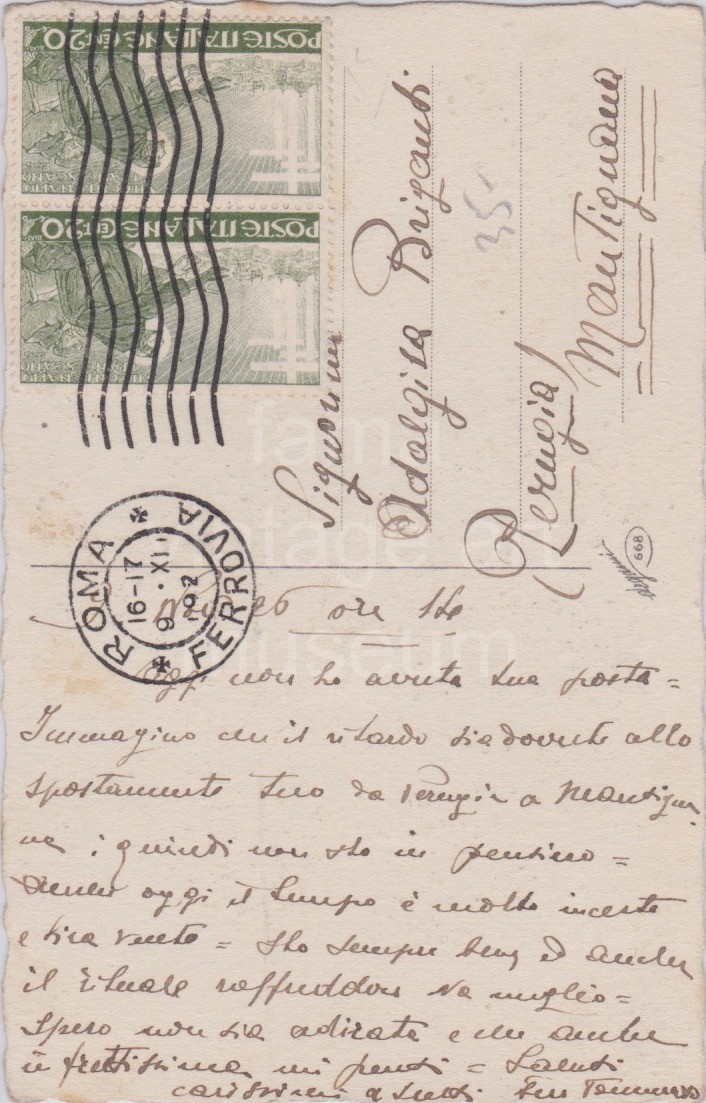 POSTE ITALIANE CENT 20
POSTE ITALIANE CENT 20
Signorina
Adalgisa Briganti
(Perugia)
Mantignana
35
668
ROMA FERROVIA
16-17
9 · XII
192
26 ore 14
Oggi non ho avuta tua posta =
Immagino che il ritardo sia dovuto allo
spostamento tuo da Perugia a Mantigna
na ; quindi non sto in pensiero =
Anche oggi il tempo è molto incerto
e tira vento = Sto sempre bene ed anche
il rituale raffreddore va meglio =
Spero non sia adirata e che anche
in frettissima mi pensi = Saluti
carissimi a tutti tuo Tommaso
fame
vintage art
museum